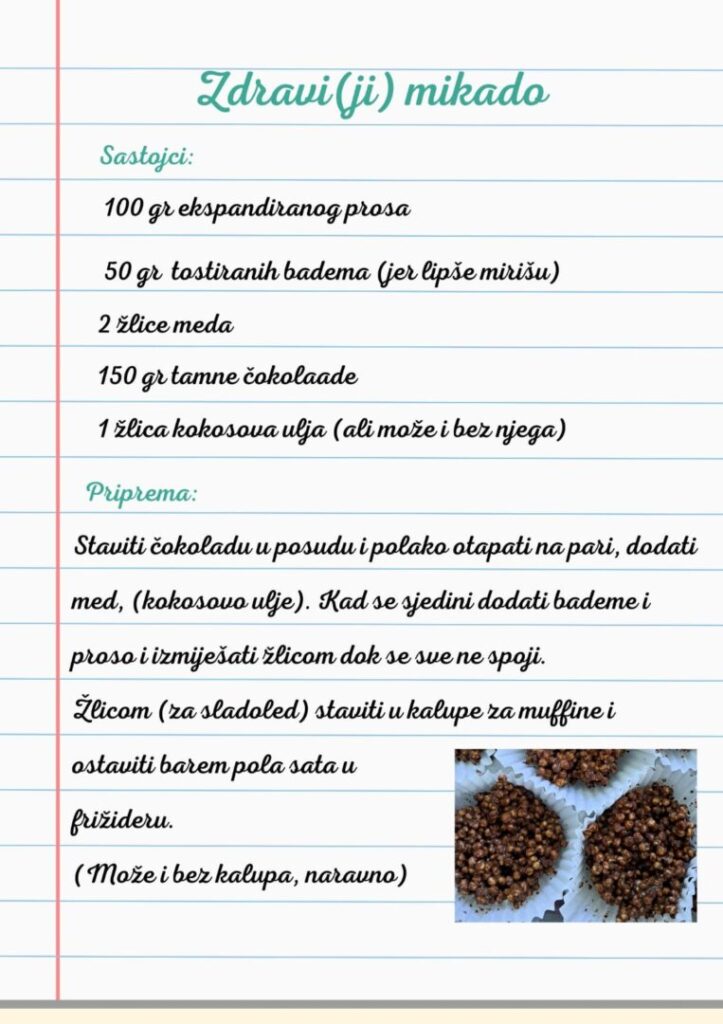 Zdravi(ji) mikado
Sastojci:
100 gr ekspandiranog prosa
50 gr tostiranih badema (jer lipše mirišu)
2 žlice meda
150 gr tamne čokolaade
1 žlica kokosova ulja (ali može i bez njega)
Priprema:
Staviti čokoladu u posudu i polako otapati na pari, dodati
med, (kokosovo ulje). Kad se sjedini dodati bademe i
proso i izmiješati žlicom dok se sve ne spoji.
Žlicom (za sladoled) staviti u kalupe za muffine i
ostaviti barem pola sata u
frižideru.
( Može i bez kalupa, naravno)